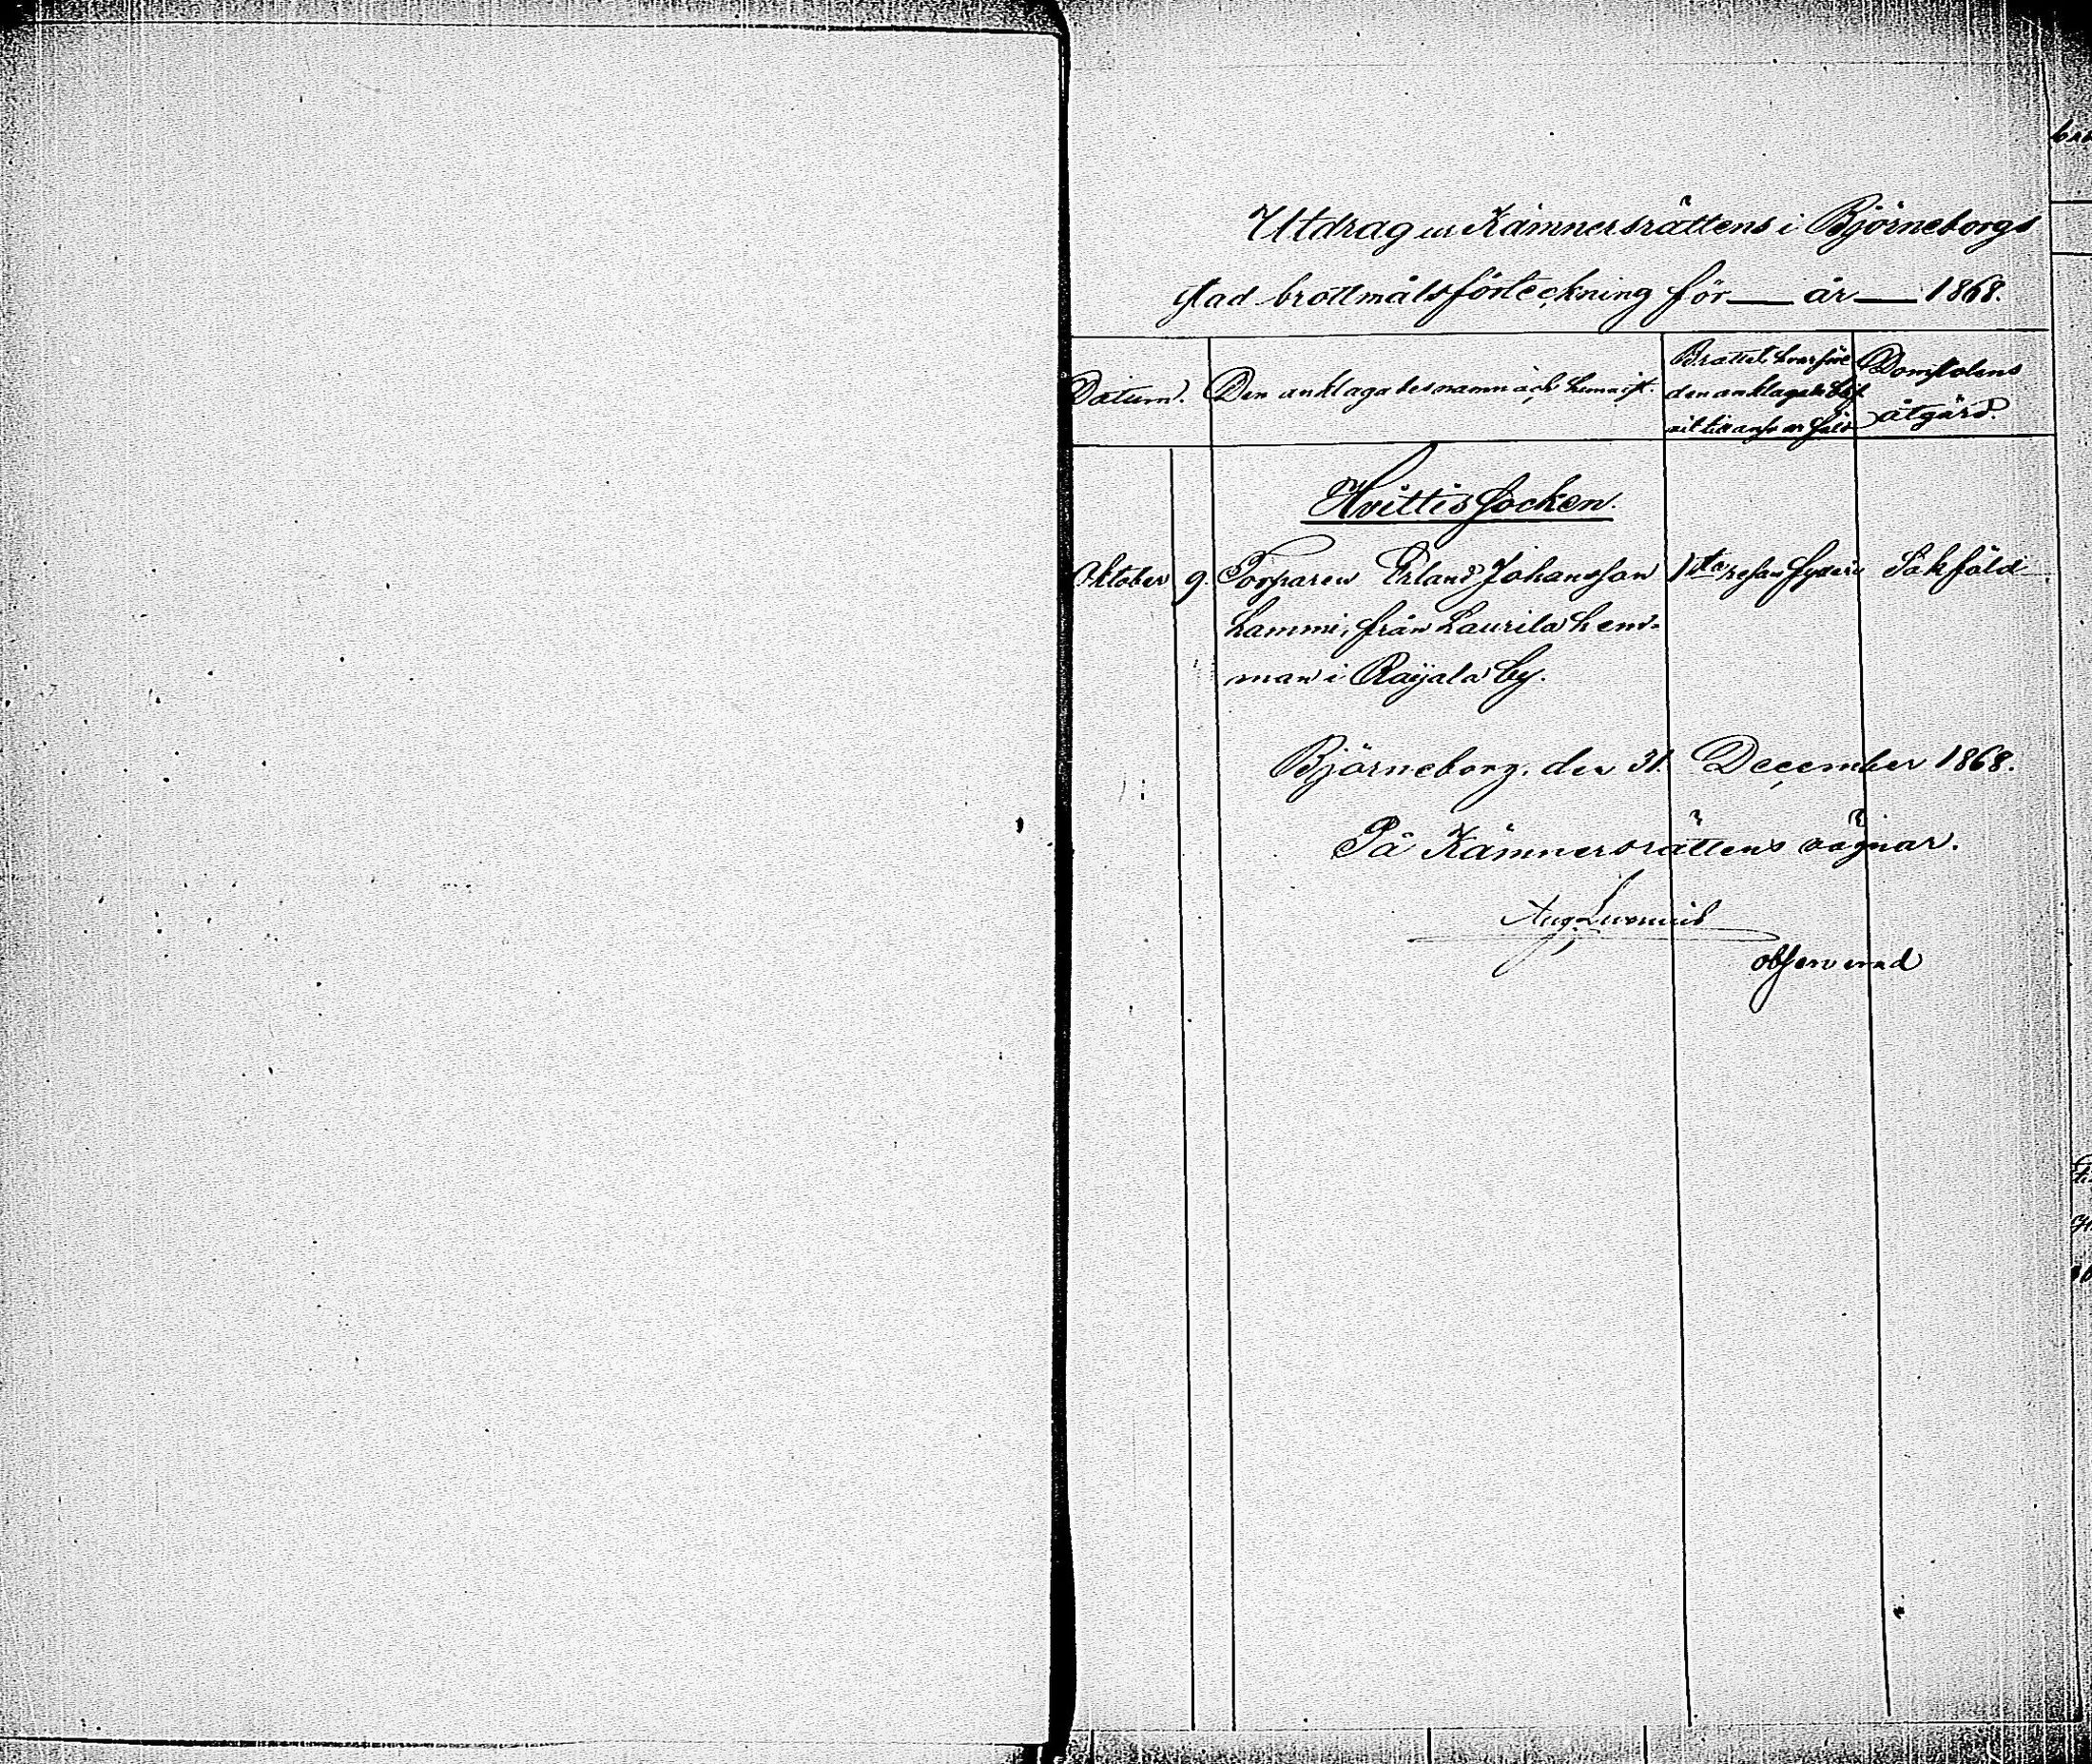 Utdrag ur Kämnersrättens i Björneborgs
stad brottmålsförteckning för — år — 1868.
Datum.
Den anklagades namn och hemvist.
Brottet, hvarföre
den anklagade blif-
vit till ansvar fäld
Domstolens
åtgärd.
Hvittis socken.
Oktober 9. Torparen Erland Johansson 1sta resan Sakfäld
Lammi, från Laurila hem-
man i Raijala by.
Björneborg, den 31. December 1868.
På Kämnersrättens vägnar.
Aug.
observerad